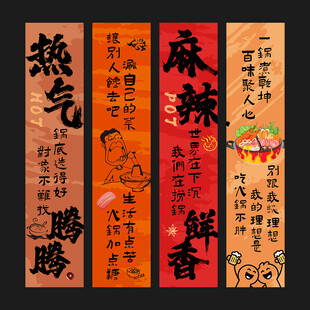 热气
HOT
鍋底选得好
對象不難找
腾腾
涮自己的菜
讓別人饞去吧
生活有点苦
火鍋加点糖
麻辣
POT
世界在下沉
我們在捞鍋
鮮香
一鍋煮乾坤
百味聚人心
別跟我談理想
我的理想是
吃火鍋不胖